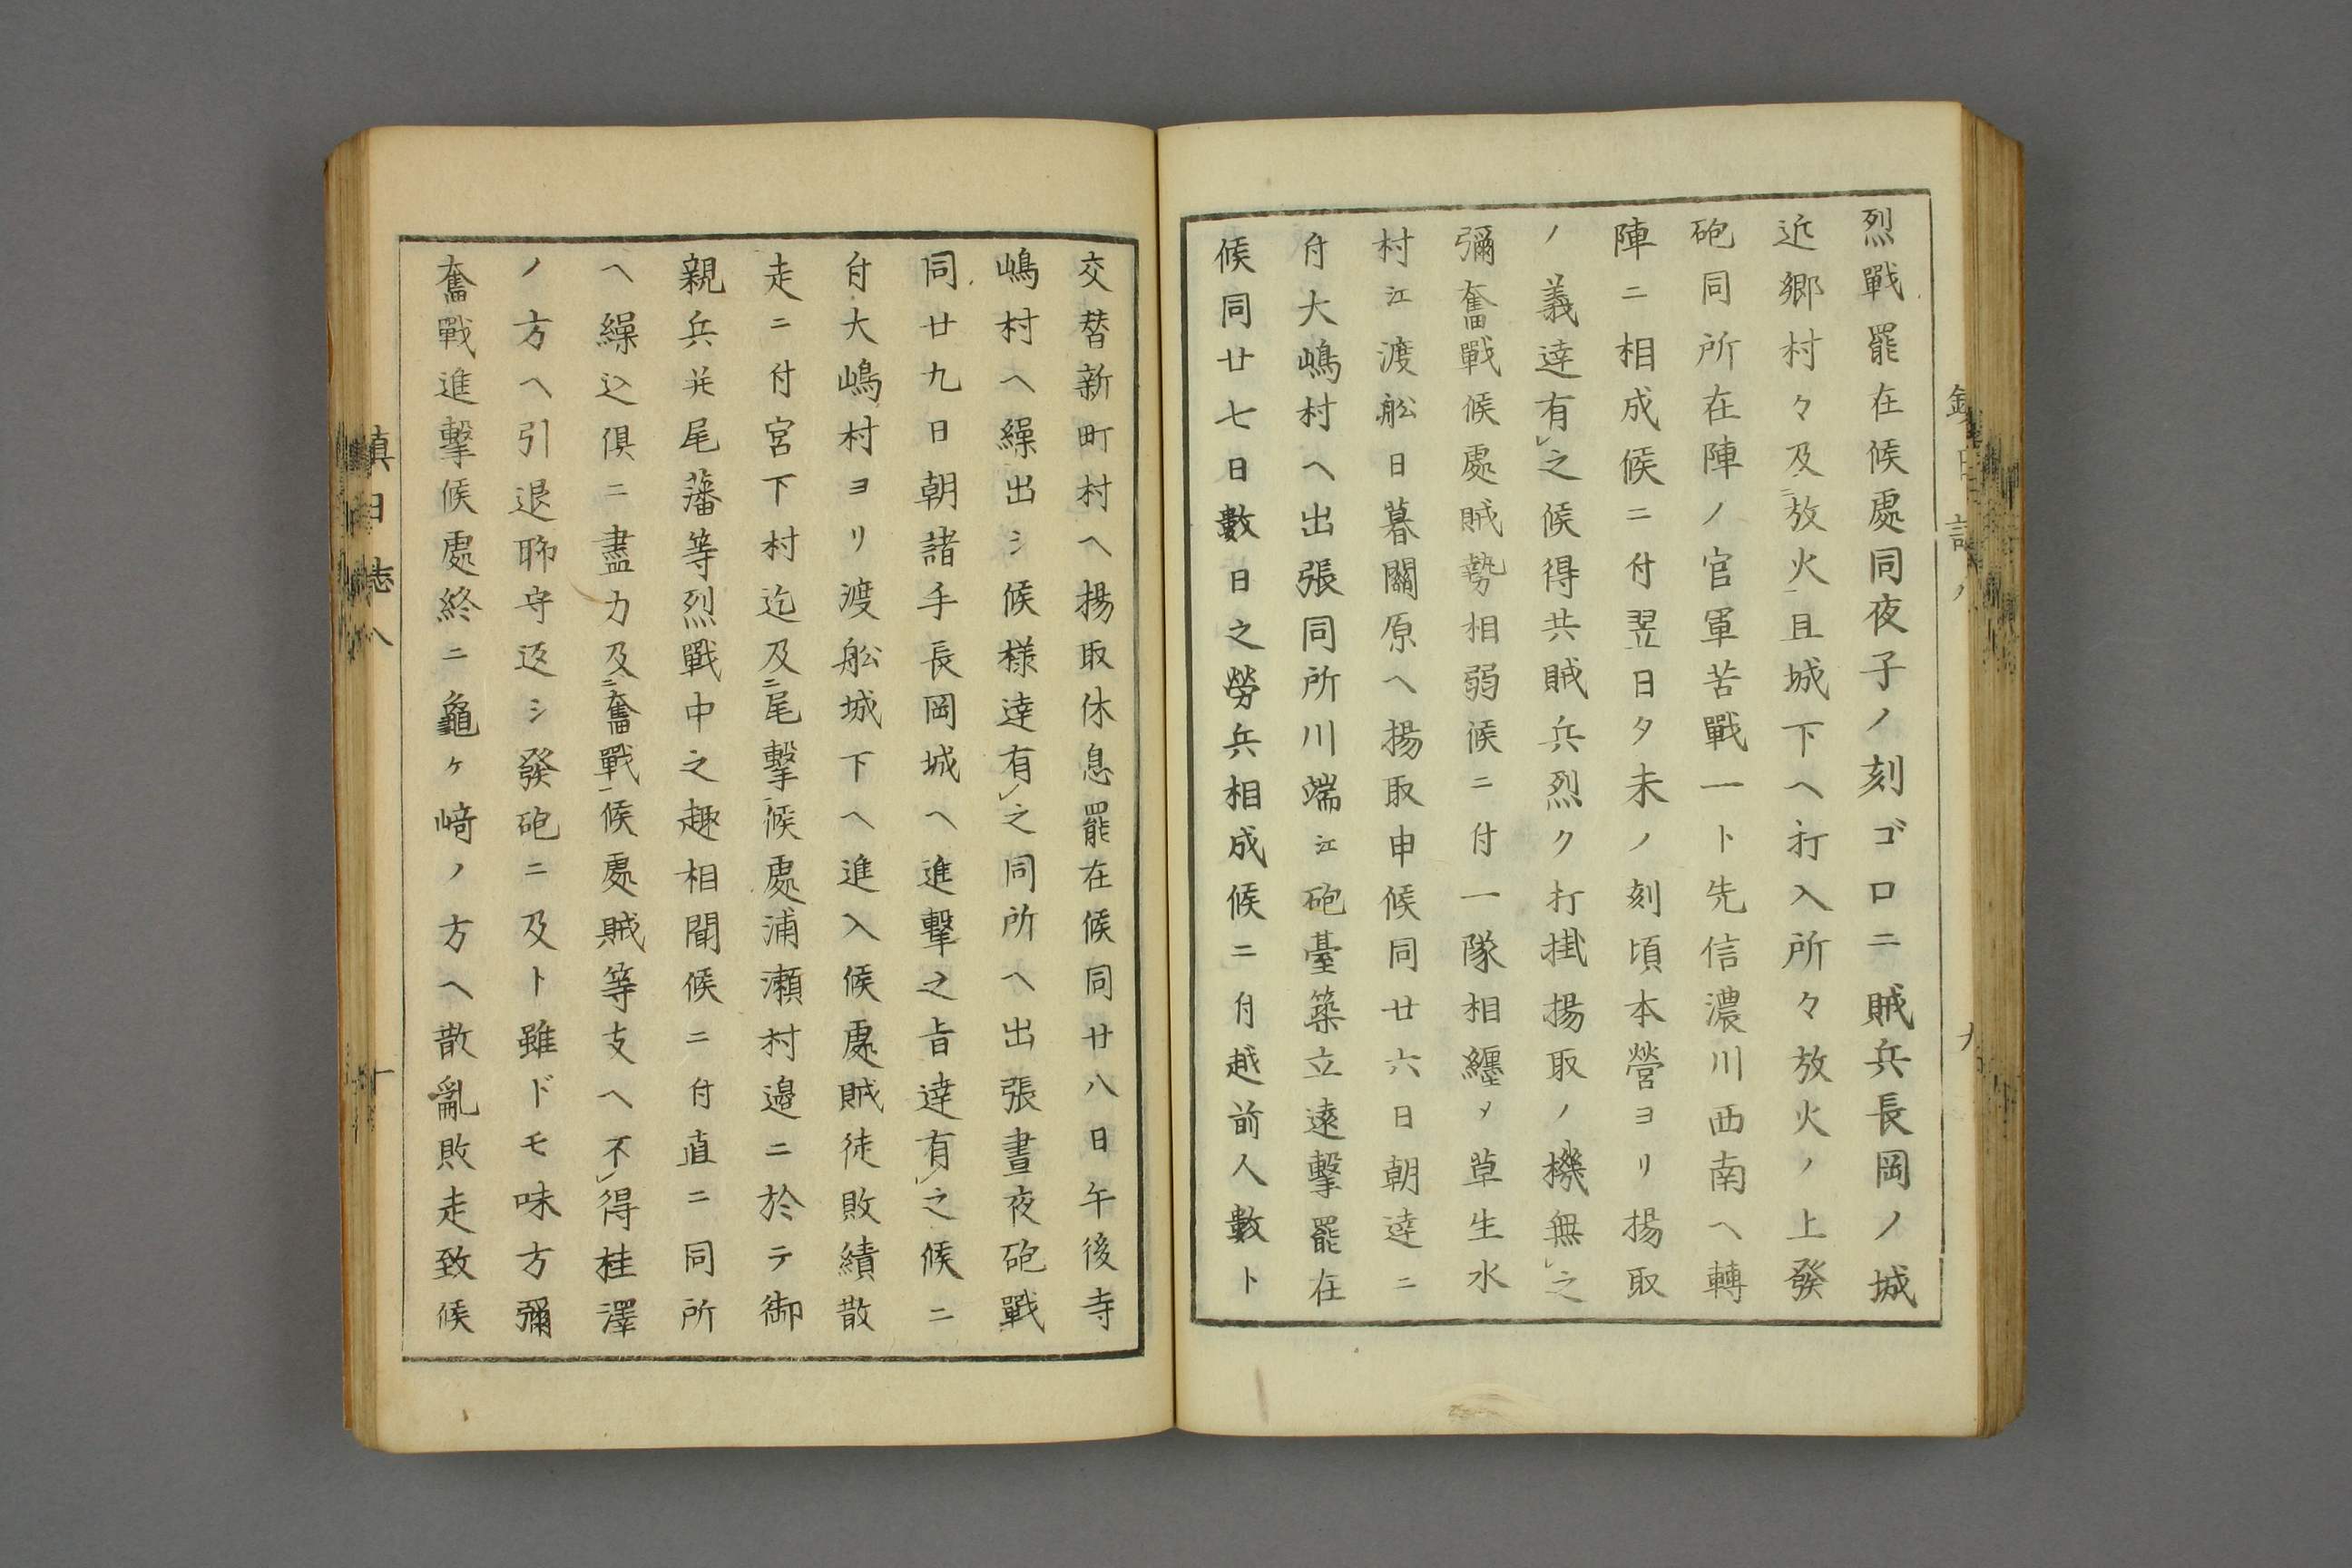 烈戰罷在候處同夜子ノ刻ゴロニ賊兵長岡ノ城
近鄉村々及ニ放火一且城下ヘ打入所々放火ノ上發
砲同所在陣ノ官軍苦戰一ト先信濃川西南ヘ轉
陣ニ相成候ニ付翌日夕未ノ刻頃本營ヨリ揚取
ノ義達有レ之候得共賊兵烈ク打掛揚取ノ機無レ之
彌奮戰候處賊勢相弱候ニ付一隊相纏メ草生水
村江渡舩日暮關原ヘ揚取申候同廿六日朝達ニ
付大嶋村ヘ出張同所川端江砲臺築立遠擊罷在
候同廿七日數日之勞兵相成候ニ付越前人數ト
交替新町村ヘ揚取休息罷在候同廿八日午後寺
嶋村ヘ繰出シ候様達有レ之同所ヘ出張晝夜砲戰
同廿九日朝諸手長岡城ヘ進擊之旨達有レ之候ニ
付大嶋村ヨリ渡舩城下ヘ進入候處賊徒敗績散
走ニ付宮下村迄及ニ尾擊一候處浦瀬村邉ニ於テ御
親兵并尾藩等烈戰中之趣相聞候ニ付直ニ同所
ヘ繰込倶ニ盡力及ニ奮戰一候處賊等支ヘ不レ得桂澤
ノ方ヘ引退聊守返シ發砲ニ及ト雖ドモ味方彌
奮戰進擊候處終ニ龜ケ﨑ノ方ヘ散亂敗走致候
鎮日志八
十